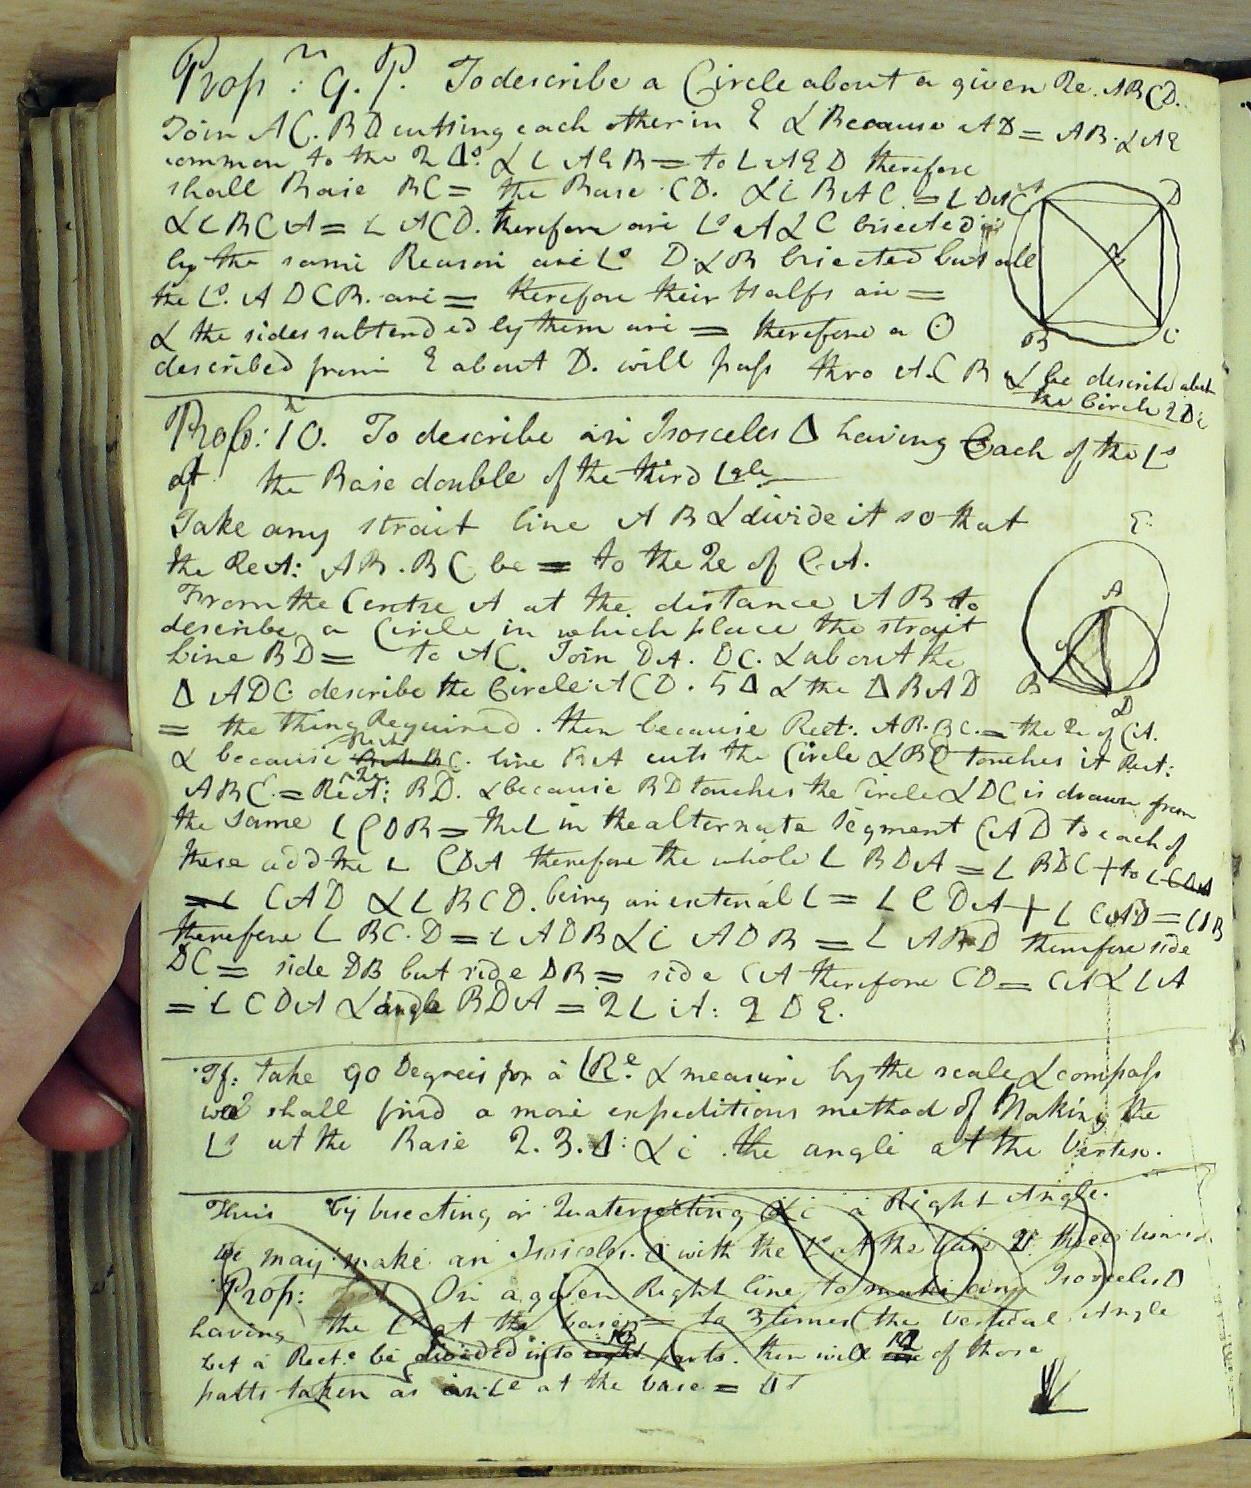 Prop:n 9. P. To describe a Circle about a given □e. ABCD.
Join AC. BD cutting each other in E & Because AD = AB. & AE
common to the 2 Δs. & L AEB = to L AED therefore
shall Base BC = the Base CD. & L BAC = L DAC
& L BCA = L ACD. therefore are Ls A & C bisected
by the same Reason are Ls D. & B bisected but all
the Ls. A D C B. are = therefore their Halfs are =
& the sides subtended by them are = therefore a ʘ
described from E about D. will pass thro A. C B & be describe about
the Circle 2 D E
Prop:n 10. To describe an Isosceles Δ having Each of the Ls
at the Base double of the third Lgle
Take any strait line AB & divide it so that
the Rect: AB. BC be = to the □e of CA.
From the Centre A at the distance AB to
describe a Circle in which place the strait
Line BD = to AC. Join DA. DC. & about the
Δ ADC describe the Circle ACD. 5 Δ & the Δ BAD
= the thing Required. then because Rect: AB. BC. = the □e of CA.
& because line BA cuts the Circle & BD touches it Rect:
ABC. = Rect: BD. & because BD touches the Circle & DC is drawn from
the same L CDB = the L in the alternate segment CAD to each of
these add the L CDA therefore the whole L BDA = L BDC + to L CDA
= L CAD & L BCD. being an external L = L CDA + L CAD = CDB
therefore L BC.D = L ADB & L ADB = L ABD therefore side
DC = side DB but side DB = side CA therefore CD = CA & L A
= L CDA & angle BDA = 2 L A: 2 D E.
If: take 90 Degrees for a LRe. & measure by the scale & compass
we shall find a more expeditious method of Making the
Ls at the Base 2. 3. 4: & c the angle at the Vertex.
Thus by bisecting or Quatersecting &c a Right Angle.
We may make an Isosceles. Δ with the Ls at the base 2 three times
Prop: On a given Right line to make any Isosceles Δ
having the Ls at the base = to 3 times the Vertical Angle
Let a Rect.e be divided into parts. then will of those
parts taken as an Le at the base =
A
D
E
B
C
E
A
C
B
D